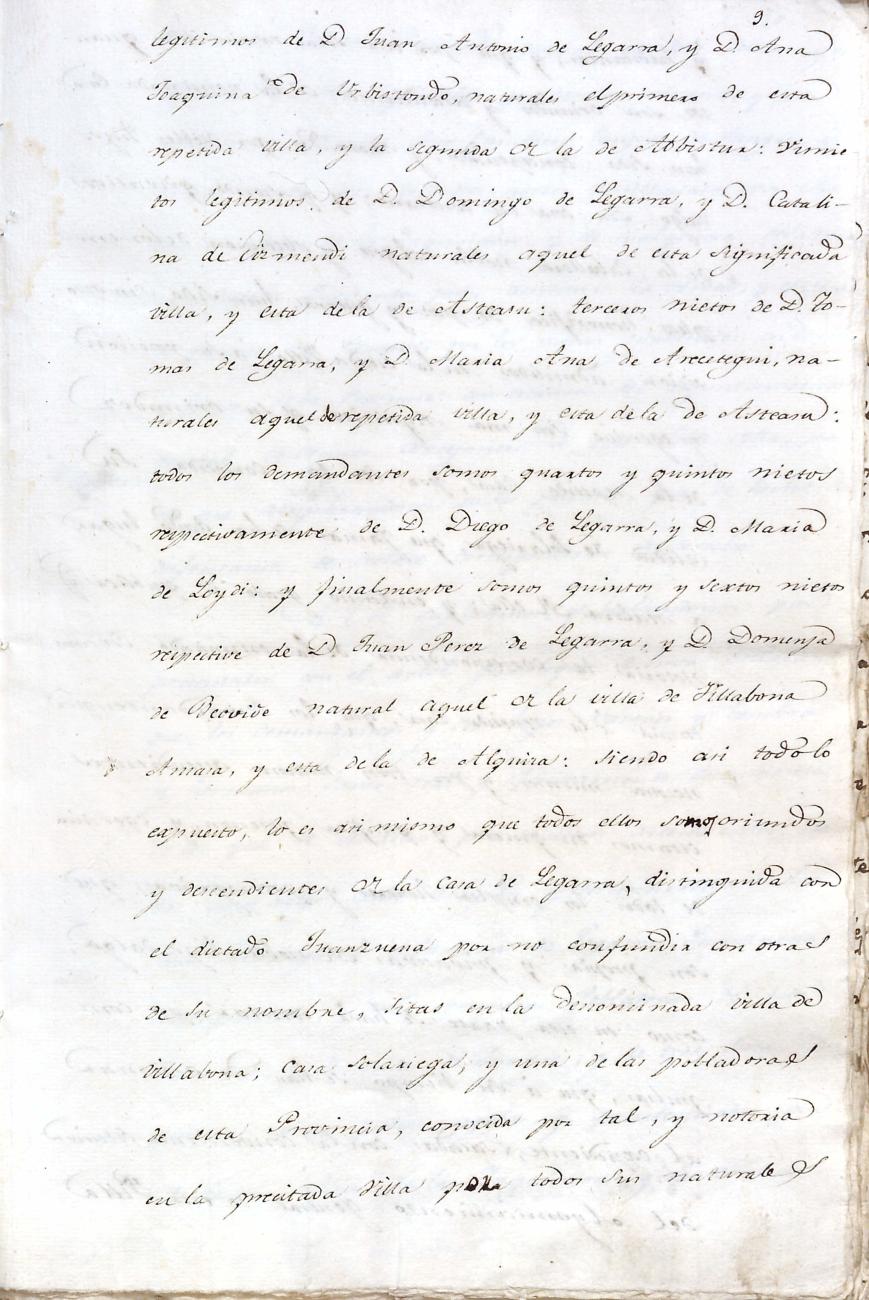 9.
legitimos de D Juan Antonio de Legarra, y D. Ana
Joaquina de Urbistondo, naturales el primero de esta
repetida villa, y la segunda de la de Albistur: visnie-
tos legitimos de D. Domingo de Legarra, y D. Catali-
na de Lizmendi naturales aquel de esta significada
villa, y esta de la de Asteasu: terceros nietos de D. To-
mas de Legarra, y D. Maria Ana de Arecetegui, na-
turales aquel de repetida villa, y esta de la de Asteasu:
todos los demandantes somos quartos y quintos nietos
respectivamente de D. Diego de Legarra, y D. Maria
de Loydi: y finalmente somos quintos y sextos nietos
respective de D. Juan Perez de Legarra, y D. Domenja
de natural aquel de la villa de Villabona
Amasa, y esta de la de Alquiza: siendo asi todo lo
expuesto, lo es asi mismo que todos ellos somos oriundos
y descendientes de la casa de Legarra, distinguida con
el dictado Juanznena por no confundir con otras
de su nombre, sitas en la denominada villa de
Villabona; casa solariega, y una de las pobladoras
de esta Provincia, conocida por tal, y notoria
en la precitada Villa para todos sus naturales